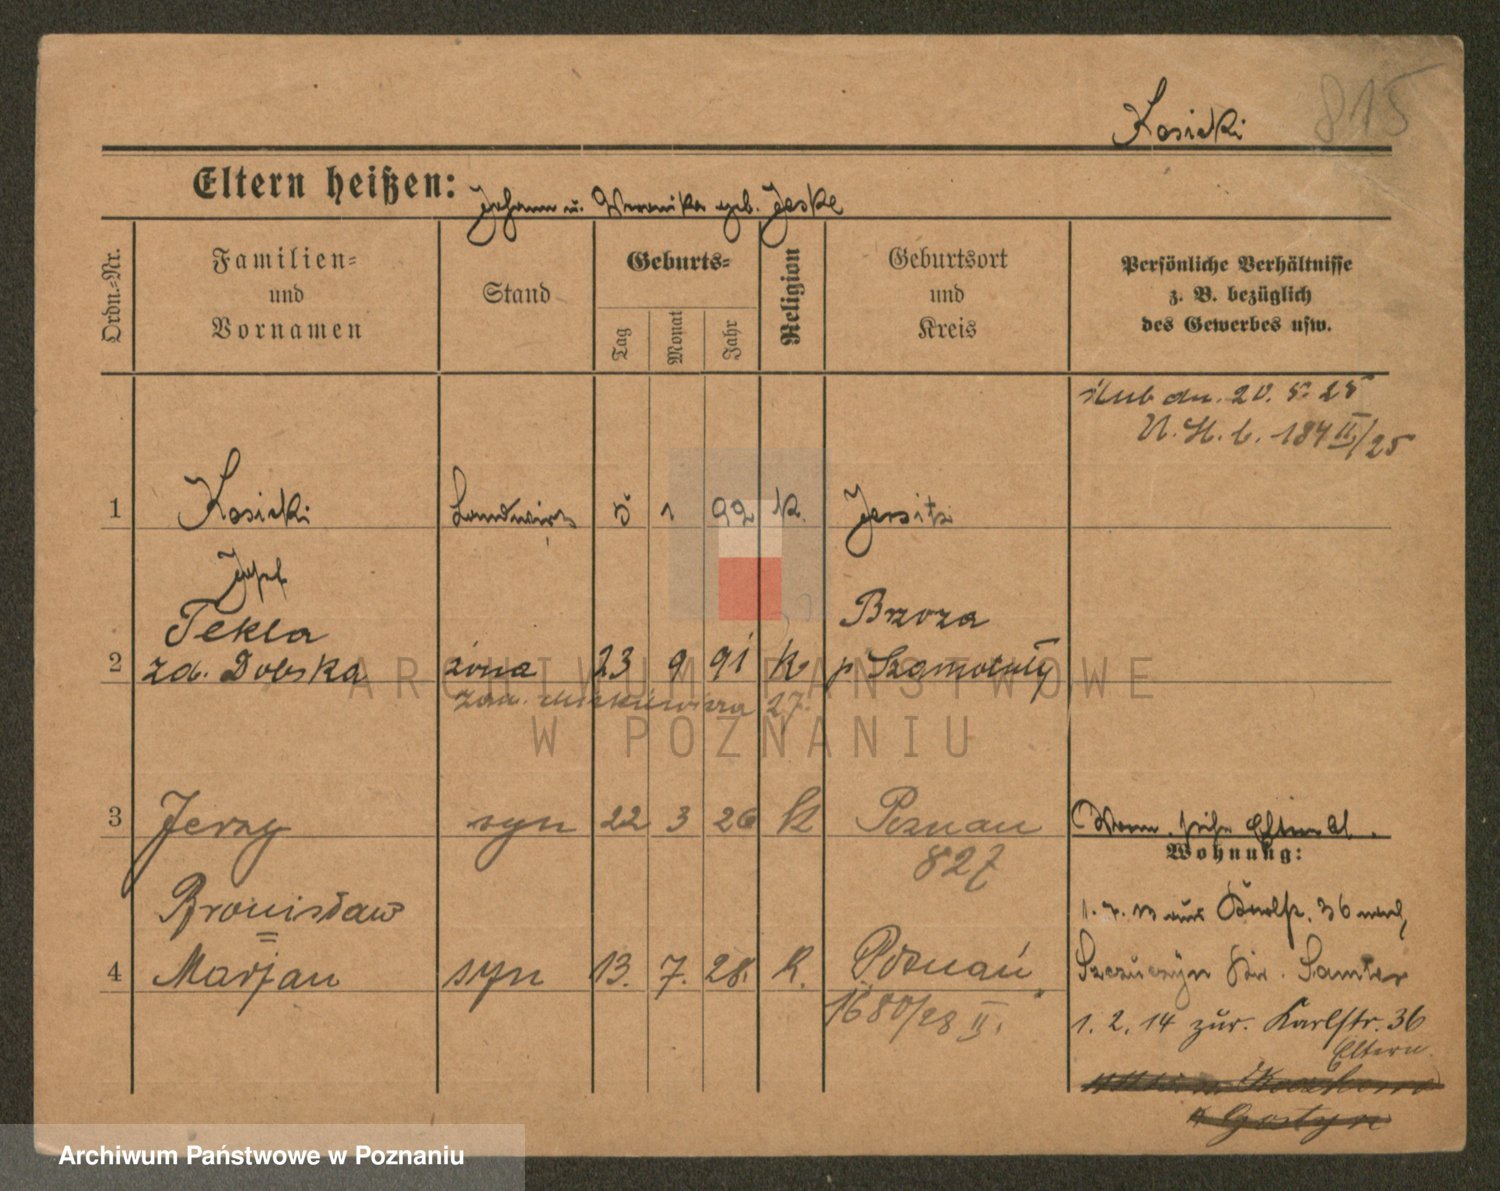 Kosicki 815
Eltern heißen: Johann u. Weronika geb. Jeske
Ordn.-Nr.
Familien- und Vornamen
Stand
Geburts-
Tag Monat Jahr
Religion
Geburtsort und Kreis
Persönliche Verhältnisse
z. B. bezüglich
des Gewerbes usw.
ślub dn. 20. 5. 25
184 II/25
1 Kosicki Landwirt 5 1 92 k. Jersitz
Josef
Tekla Brzoza
2 zd. Dolska żona 23 9 91 k. p. Szamotuły
27.
3 Jerzy syn 22 3 26 k Poznań
827
Wohnung:
Bronisław
=
4 Marjan syn 13. 7. 28. k. Poznań
1680/28 II.
1. 7. 13 aus Karlstr. 36 nach
Kr. Samter
1. 2. 14 zur. Karlstr. 36
Eltern
Gostyn
ARCHIWUM PAŃSTWOWE
W POZNANIU
Archiwum Państwowe w Poznaniu